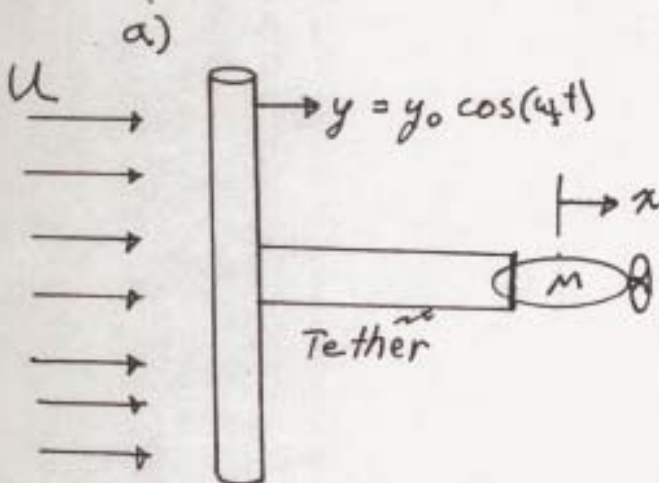 a)
U
y = y₀ cos(ω_f t)
x
M
Tether